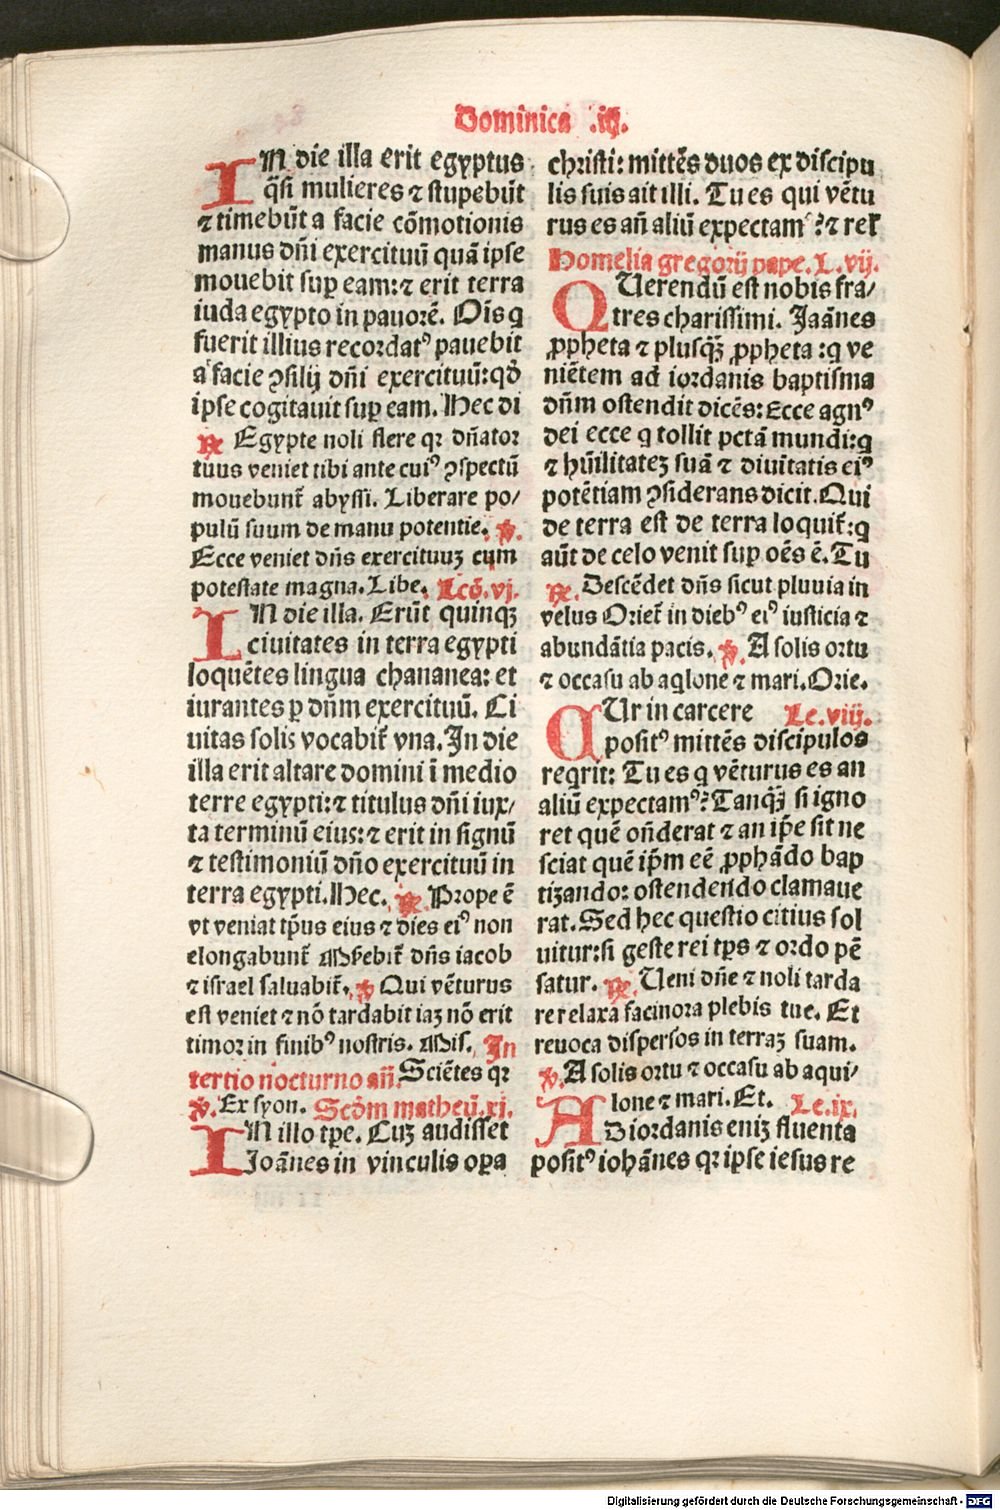 Dominica .iij.
IN die illa erit egyptus
q̃si mulieres ⁊ stupebũt
⁊ timebũt a facie cõmotionis
manus dñi exercituũ quã ipse
mouebit suꝑ eam:⁊ erit terra
iuda egypto in pauorẽ. Oĩs q
fuerit illius recordatꝰ pauebit
a facie ꝯsilij dñi exercituũ:qd̃
ipse cogitauit suꝑ eam. Hec di
℟ Egypte noli flere qꝛ dñator
tuus veniet tibi ante cuiꝰ ꝯspectũ
mouebunt̃ abyssi. Liberare po/
pulũ suum de manu potentie. ℣.
Ecce veniet dñs exercituuꝫ cum
potestate magna. Libe. Lcõ.vj.
IN die illa. Erũt quinqꝫ
ciuitates in terra egypti
loquẽtes lingua chananea: et
iurantes ꝑ dñm exercituũ. Ci
uitas solis vocabit̃ vna. In die
illa erit altare domini ĩ medio
terre egypti:⁊ titulus dñi iux/
ta terminũ eius:⁊ erit in signũ
⁊ testimoniũ dño exercituũ in
terra egypti. Hec. ℟ Prope ẽ
vt veniat tp̃us eius ⁊ dies eiꝰ non
elongabunt̃ Miẜebit̃ dñs iacob
⁊ israel saluabit̃. ℣ Qui vẽturus
est veniet ⁊ nõ tardabit iaꝫ nõ erit
timor in finibꝰ nostris. Mis. In
tertio nocturno añ. Sciẽtes qꝛ
℣. Ex syon. Scd̃m matheũ.xj.
IN illo tꝑe. Cuꝫ audisset
Joãnes in vinculis oꝑa
christi: mittẽs duos ex discipu
lis suis ait illi. Tu es qui vẽtu
rus es añ aliũ expectamꝰ? ⁊ rel̃
Homelia gregorij pape. L.vij.
QUerendũ est nobis fra/
tres charissimi. Joãnes
ꝓpheta ⁊ plusqꝫ̃ ꝓpheta :q ve
niẽtem ad iordanis baptisma
dñm ostendit dicẽs: Ecce agnꝰ
dei ecce q tollit pctã mundi:q
⁊ hũilitateꝫ suã ⁊ diuĩtatis eiꝰ
potẽtiam ꝯsiderans dicit. Qui
de terra est de terra loquit̃:q
aũt de celo venit suꝑ oẽs ẽ. Tu
℟. Descẽdet dñs sicut pluuia in
velus Oriet̃ in diebꝰ eiꝰ iusticia ⁊
abundãtia pacis. ℣. A solis ortu
⁊ occasu ab aqlone ⁊ mari. Orie.
CUr in carcere Le.viij.
positꝰ mittẽs discipulos
reqrit: Tu es q vẽturus es an
aliũ expectamꝰ? Tanqꝫ̃ si igno
ret quẽ oñderat ⁊ an ip̃e sit ne
sciat quẽ ip̃m eẽ ꝓphãdo bap
tizando: ostendendo clamaue
rat. Sed hec questio citius sol
uitur:si geste rei tꝑs ⁊ ordo pẽ
satur. ℟. Ueni dñe ⁊ noli tarda
re relaxa facinora plebis tue. Et
reuoca dispersos in terraꝫ suam.
℣. A solis ortu ⁊ occasu ab aqui/
lone ⁊ mari. Et. Le.ix.
AD iordanis eniꝫ fluenta
positꝰ iohãnes qꝛ ipse iesus re
Digitalisierung gefördert durch die Deutsche Forschungsgemeinschaft - DFG